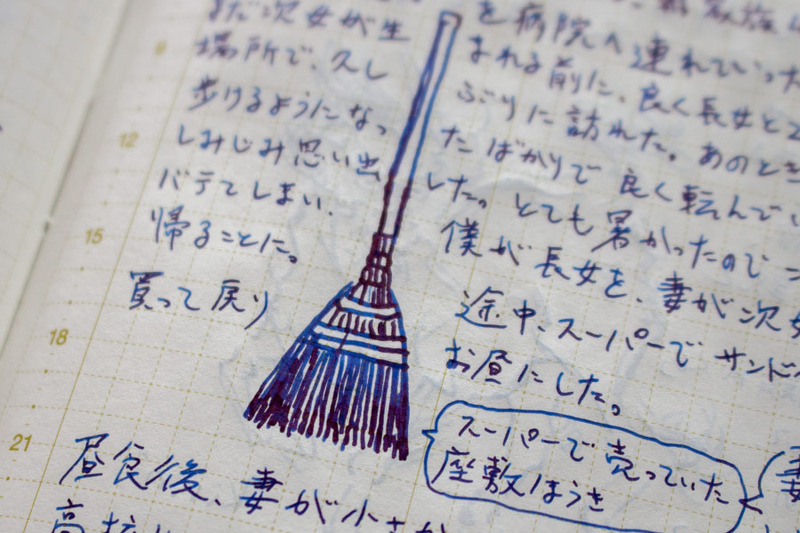 を病院へ連れていった
まだ次女が生まれる前に、良く長女と
場所で、久しぶりに訪れた。あのとき
歩けるようになったばかりで良く転んでい
しみじみ思い出した。とても暑かったので
バテてしまい、僕が長女を、妻が次女
帰ることに。途中、スーパーでサンドイ
買って戻りお昼にした。
スーパーで売っていた
座敷ほうき
昼食後、妻が小さ
9
12
15
18
21